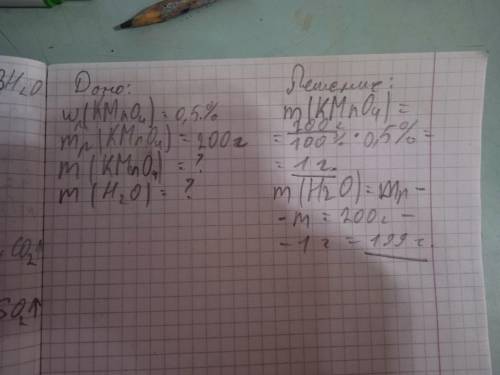 3H₂O
CO₂↑
SO₂↑
Дано:
w(KMnO₄) = 0,5%
mр(KMnO₄) = 200г
m(KMnO₄) = ?
m(H₂O) = ?
Решение:
m(KMnO₄) =
= 200 г / 100% · 0,5% =
= 1 г.
m(H₂O) = mр -
- m = 200г -
- 1 г = 199 г.